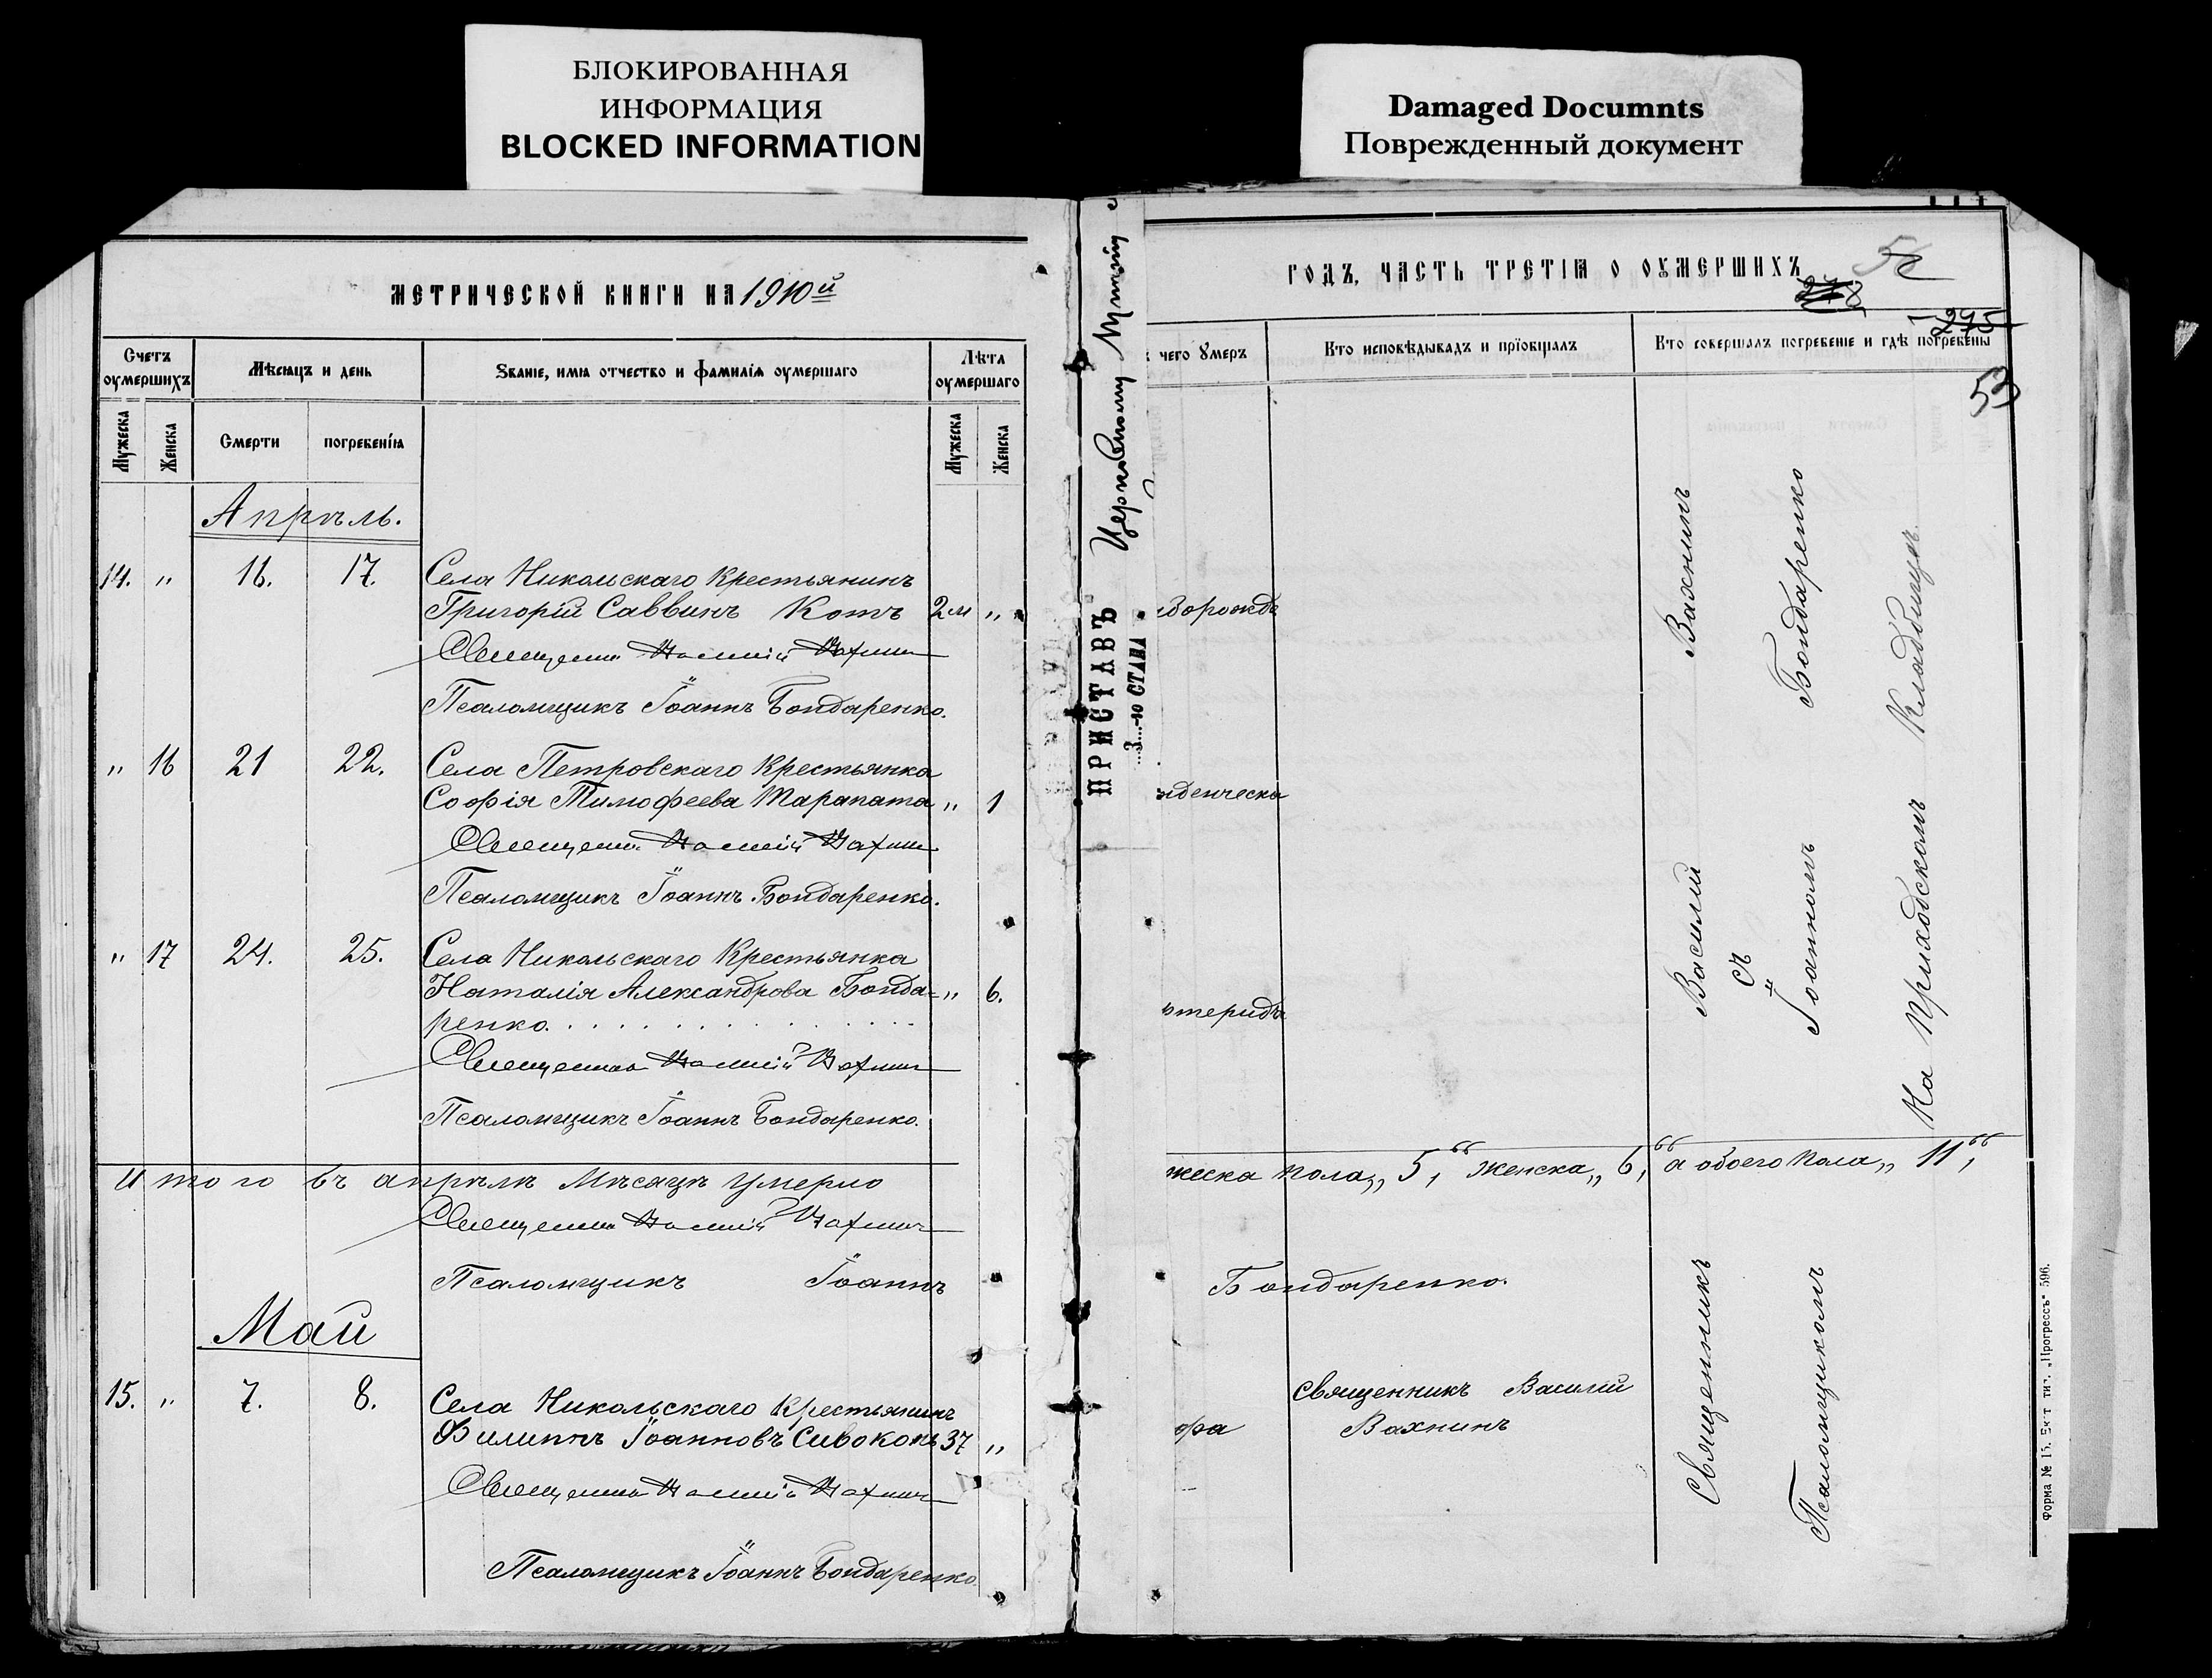 БЛОКИРОВАННАЯ
ИНФОРМАЦИЯ
BLOCKED INFORMATION
Damaged Documnts
Поврежденный документ
МЕТРИЧЕСКОЙ КНИГИ НА 1910й
Счетъ оумершихъ
Мѣсяцъ и день
Званіе, имя отчество и фамилія оумершаго
Лѣта оумершаго
Мужеска
Женска
Смерти
погребенія
Мужеска
Женска
Апрѣль.
14. " 16. 17. Села Никольскаго Крестьянинъ
Григорій Саввинъ Котъ 2 м "
Священникъ Василій Вахнинъ
Псаломщикъ Іоаннъ Бондаренко.
" 16 21 22. Села Петровскаго Крестьянка
Софія Тимофеева Тарапата " 1
Священникъ Василій Вахнинъ
Псаломщикъ Іоаннъ Бондаренко.
" 17 24. 25. Села Никольскаго Крестьянка
Наталія Александрова Бонда= " 6.
ренко.
Священникъ Василій Вахнинъ
Псаломщикъ Іоаннъ Бондаренко.
Итого въ апрѣлѣ Мѣсяцѣ умерло
Священникъ Василій Вахнинъ
Псаломщикъ Іоаннъ
Май
15. " 7. 8. Села Никольскаго Крестьянинъ
Филиппъ Іоанновъ Сивоконь 37 "
Священникъ Василій Вахнинъ
Псаломщикъ Іоаннъ Бондаренко
Церковному
ПРИСТАВЪ
3-го СТАНА
ГОДЪ, ЧАСТЬ ТРЕТІЯ О ОУМЕРШИХЪ
278
275
53
чего Умеръ
Кто исповѣдывалъ и пріобщалъ
Кто совершалъ погребеніе и гдѣ погребены
ворожд
денческа
теридъ
жеска пола „ 5, " женска „ 6, " а обоего пола „ 11, "
Бондаренко.
фа
Священникъ Василій
Вахнинъ
Священникъ Василій Вахнинъ
съ
Псаломщикомъ Іоанномъ Бондаренко
На Приходскомъ Кладбищѣ
Форма № 15. Ек-т тип. „Прогрессъ" 596.